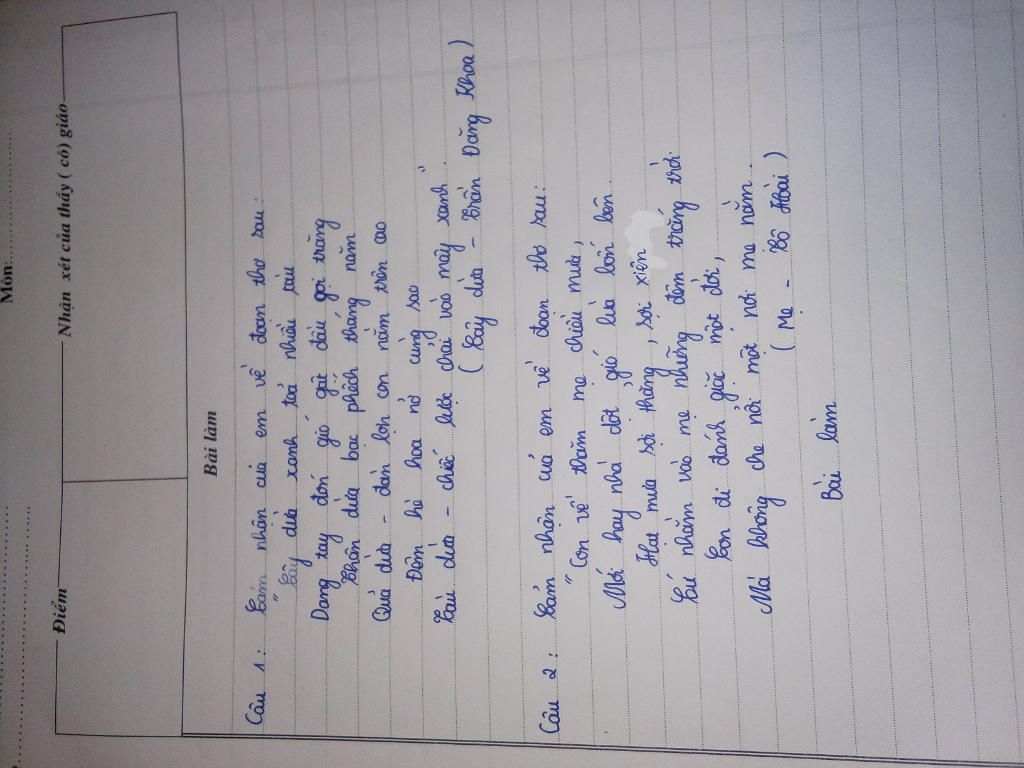 Môn..................
Điểm
Nhận xét của thầy ( cô) giáo
Bài làm
Câu 1 : Cảm nhận của em về đoạn thơ sau :
" Cây dừa xanh toả nhiều tàu
Dang tay đón gió gật đầu gọi trăng
Thân dừa bạc phếch tháng năm
Quả dừa - đàn lợn con nằm trên cao
Đêm hè hoa nở cùng sao
Tàu dừa - chiếc lược chải vào mây xanh "
( Cây dừa - Trần Đăng Khoa )
Câu 2 : Cảm nhận của em về đoạn thơ sau :
" Con về thăm mẹ chiều mưa,
Mới hay nhà dột gió lùa bốn bên.
Hạt mưa sợi thẳng, sợi xiên
Cứ nhằm vào mẹ những đêm trắng trời.
Con đi đánh giặc một đời,
Mà không che nổi một nơi mẹ nằm.
( Mẹ - Tô Hoài )
Bài làm